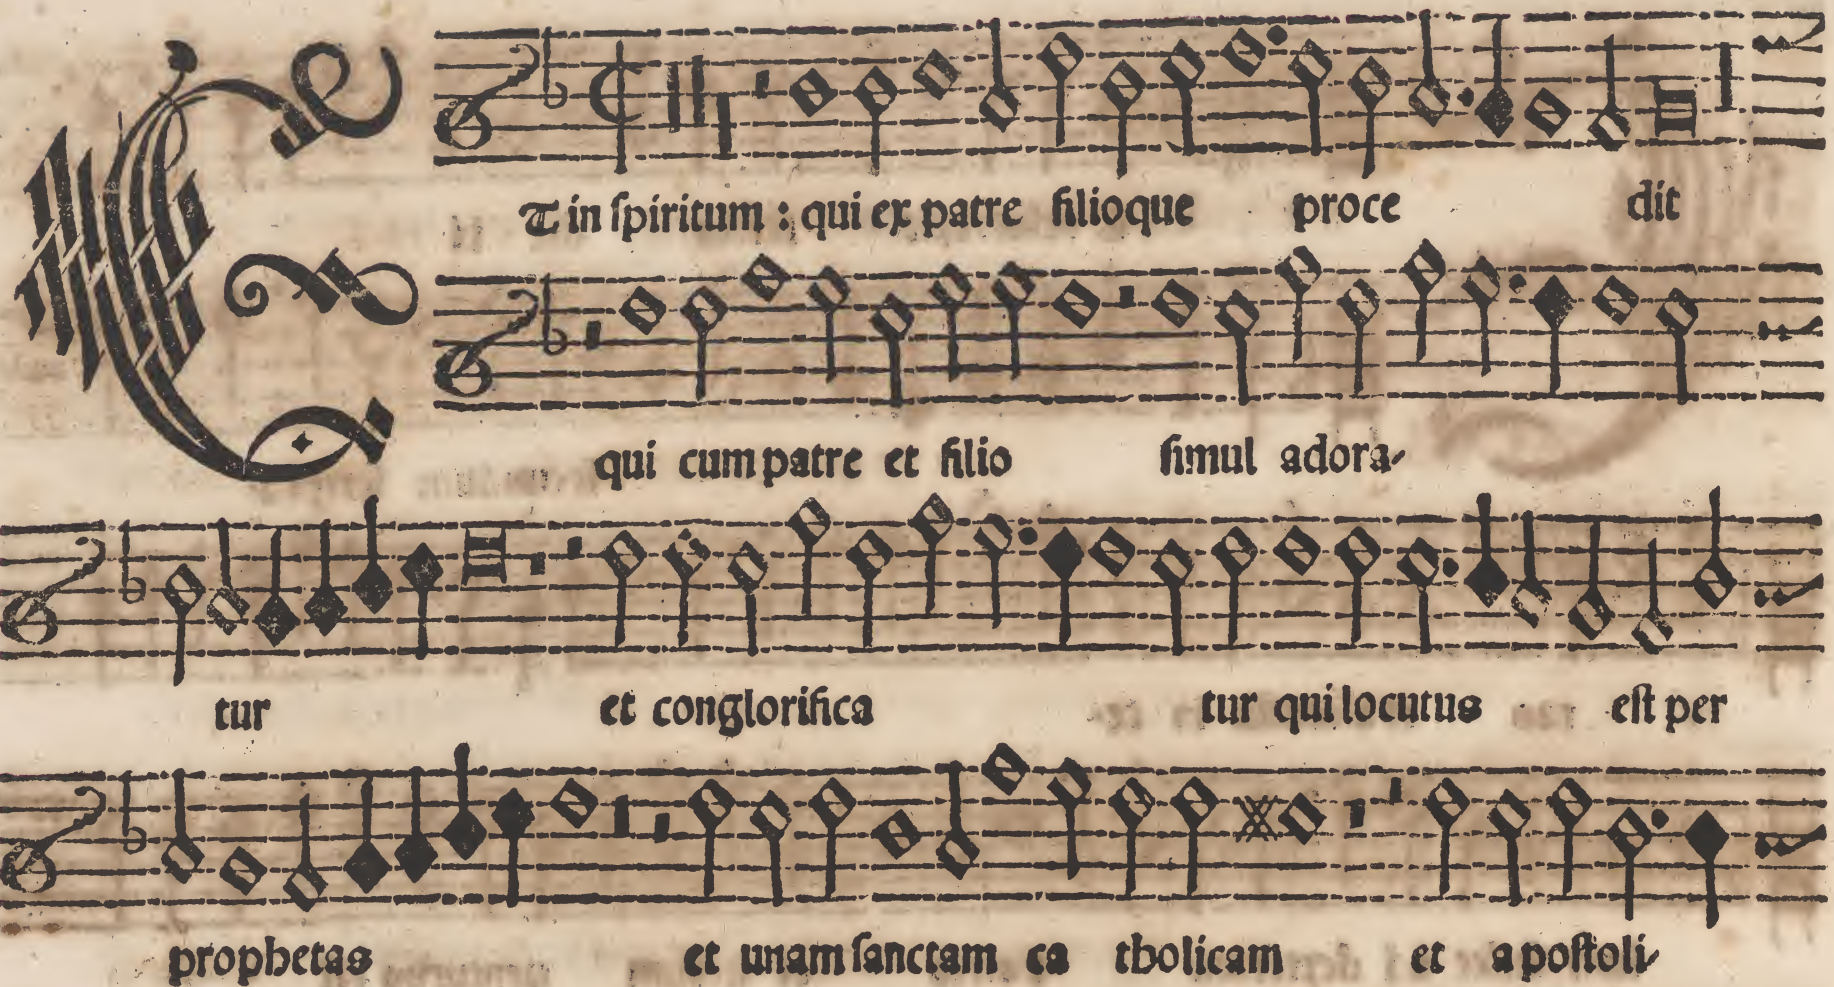 ET in ſpiritum : qui ex patre filioque proce dit
qui cum patre et filio ſimul adora-
tur et conglorifica tur qui locutus eſt per
prophetas et unam ſanctam ca tholicam et apoſtoli-